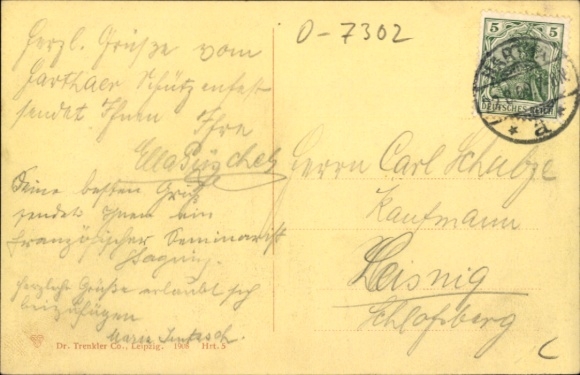 O-7302
5 5
DEUTSCHES REICH
HARTHA
a
Herzl. Grüße vom
Harthaer Schützenfest
sendet Ihnen Ihre
Ella
Seine besten Grüße
sendet Ihnen ein
französischer Seminarist
Herzliche Grüße erlaubt sich
beizufügen
Marie
Herrn Carl Schulze
Kaufmann
Leisnig
Schloßberg
Dr. Trenkler Co., Leipzig. 1908 Hrt. 5